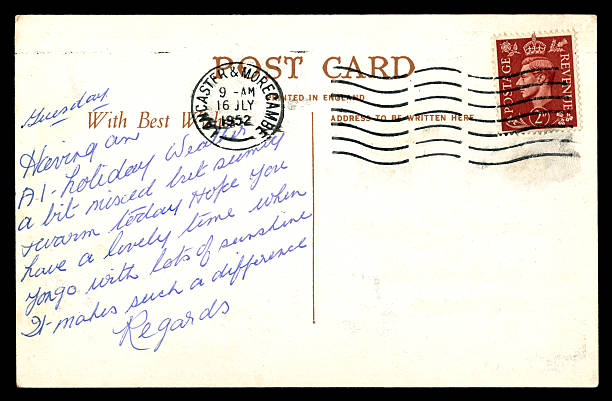 POST CARD
LANCASTER & MORECAMBE
9 - AM
16 JLY
1952
POSTAGE REVENUE
2D
PRINTED IN ENGLAND
With Best Wishes
ADDRESS TO BE WRITTEN HERE
Tuesday
Having an
A.1. holiday Weather
a bit mixed but sunny
& warm today Hope you
have a lovely time when
you go with lots of sunshine
It makes such a difference
Regards